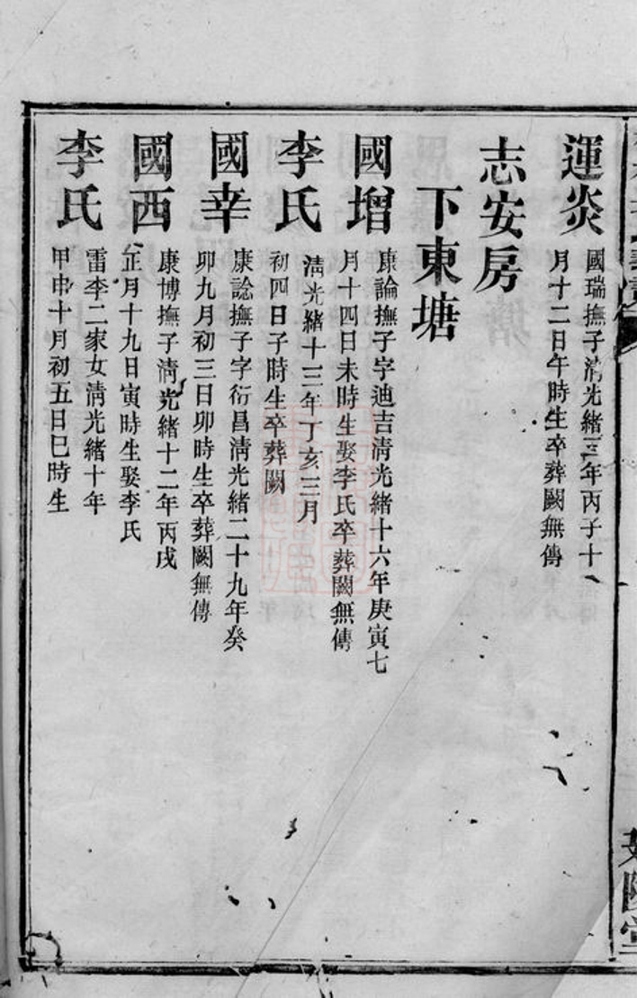 運炎
國瑞撫子清光緒三年丙子十
月十二日午時生卒葬闕無傳
志安房
下東塘
國增
康論撫子字迪吉清光緒十六年庚寅七
月十四日未時生娶李氏卒葬闕無傳
李氏
清光緒十三年丁亥三月
初四日子時生卒葬闕
國幸
康諗撫子字衍昌清光緒二十九年癸
卯九月初三日卯時生卒葬闕無傳
國西
康博撫子清光緒十二年丙戌
正月十九日寅時生娶李氏
李氏
雷李二家女清光緒十年
甲申十月初五日巳時生